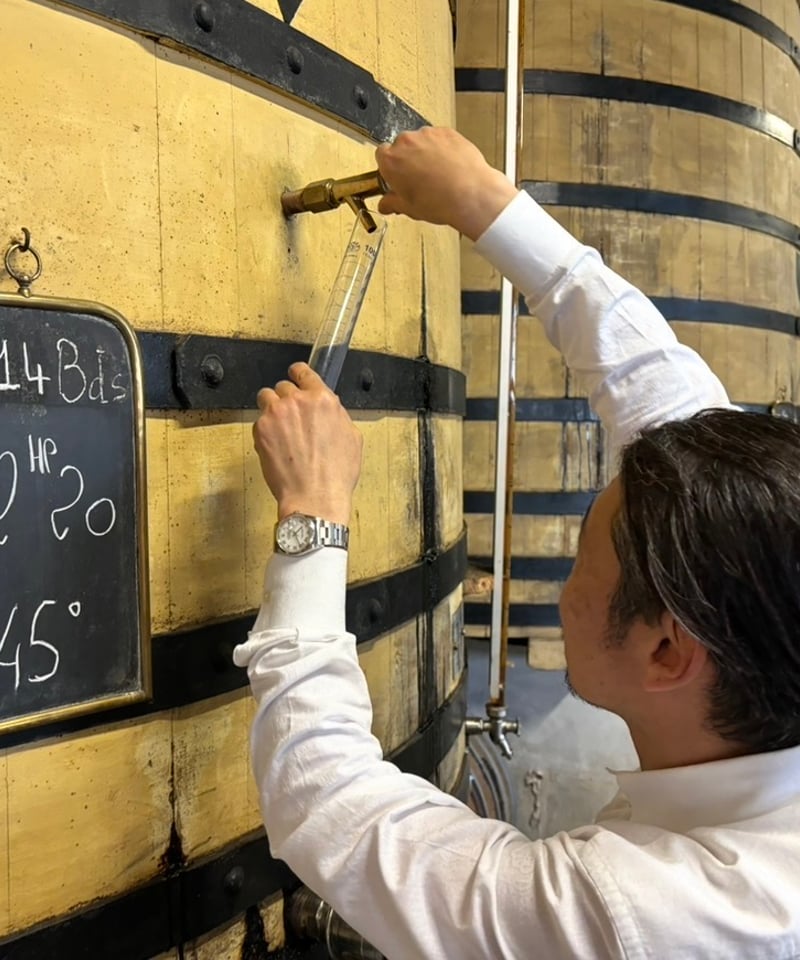 14 Bds
HP
20
45°
100